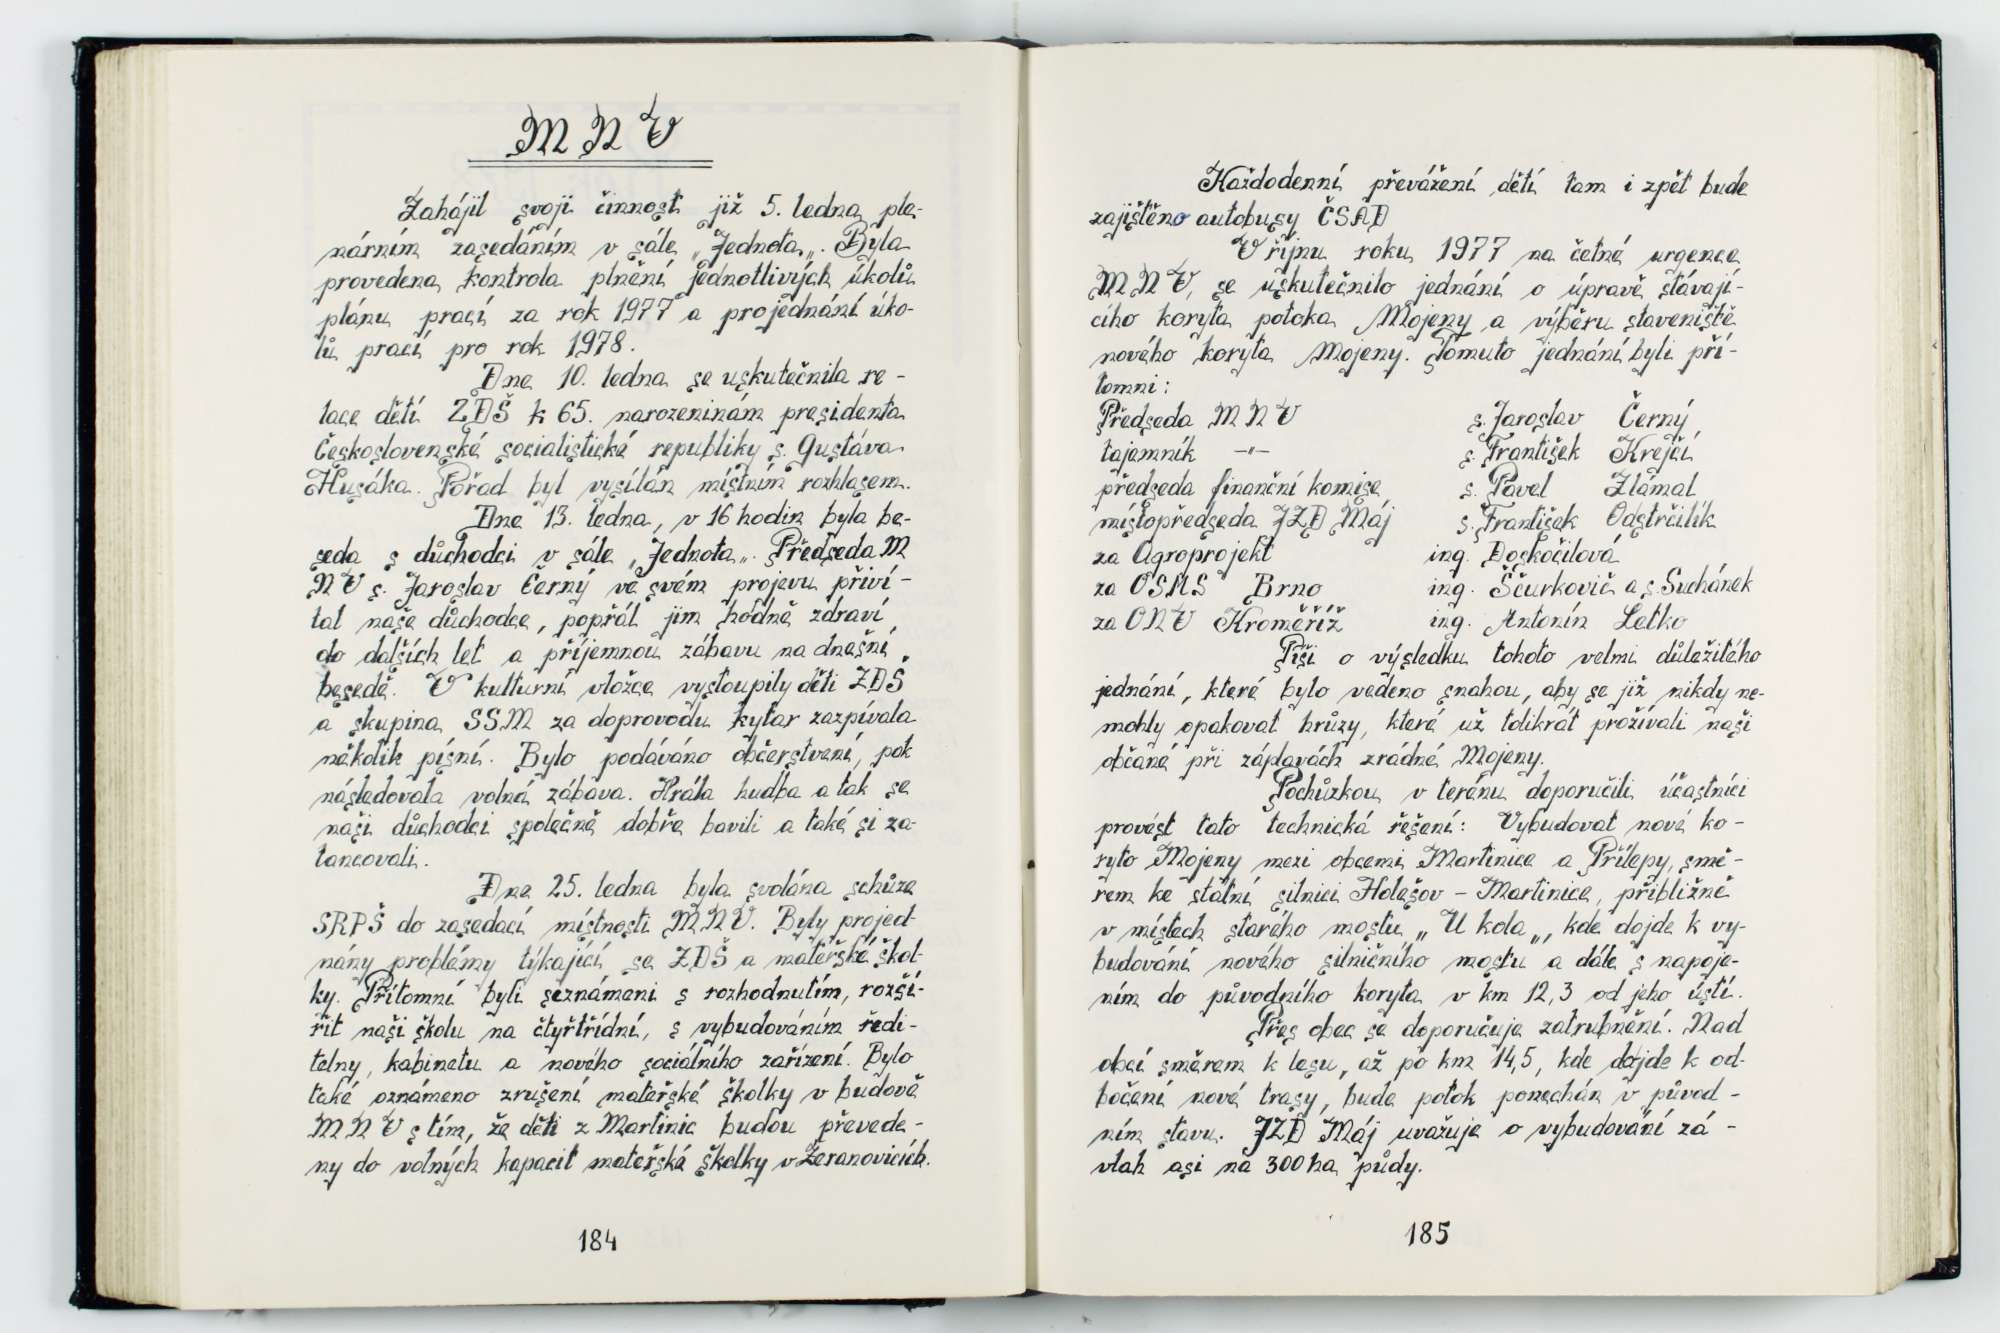 M N V
Zahájil svoji činnost již 5. ledna ple-
nárním zasedáním v sále „Jednota„. Byla
provedena kontrola plnění jednotlivých úkolů
plánu prací za rok 1977 a projednání úko-
lů prací pro rok 1978.
Dne 10. ledna se uskutečnila re-
lace dětí ZDŠ k 65. narozeninám presidenta
Československé socialistické republiky s. Gustáva
Husáka. Pořad byl vysílán místním rozhlasem.
Dne 13. ledna, v 16 hodin byla be-
seda s důchodci v sále „Jednota„. Předseda M
N V s. Jaroslav Černý ve svém projevu přiví-
tal naše důchodce, popřál jim hodně zdraví
do dalších let a příjemnou zábavu na dnešní
besedě. V kulturní vložce vystoupily děti ZDŠ
a skupina SSM za doprovodu kytar zazpívala
několik písní. Bylo podáváno občerstvení, pak
následovala volná zábava. Hrála hudba a tak se
naši důchodci společně dobře bavili a také si za-
tancovali.
Dne 25. ledna byla svolána schůze
SRPŠ do zasedací místnosti MNV. Byly projed-
nány problémy týkající se ZDŠ a mateřské škol-
ky. Přítomní byli seznámeni s rozhodnutím, rozší-
řit naši školu na čtyřtřídní, s vybudováním ředi-
telny, kabinetu a nového sociálního zařízení. Bylo
také oznámeno zrušení mateřské školky v budově
M N V s tím, že děti z Martinic budou převede-
ny do volných kapacit mateřské školky v Žeranovicích.
184
Každodenní převážení dětí tam i zpět bude
zajištěno autobusy ČSAD
V říjnu roku 1977 na četné urgence
M N V, se uskutečnilo jednání o úpravě stávají-
cího koryta potoka Mojeny a výběru staveniště
nového koryta Mojeny. Tomuto jednání byli pří-
tomni:
Předseda M N V s. Jaroslav Černý
tajemník -"- s. František Krejčí
předseda finanční komise s. Pavel Zlámal
místopředseda JZD Máj s. František Odstrčilík
za Agroprojekt ing. Doskočilová
za OSMS Brno ing. Ščurkovič a s. Suchánek
za ONV Kroměříž ing. Antonín Letko
Píši o výsledku tohoto velmi důležitého
jednání, které bylo vedeno snahou, aby se již nikdy ne-
mohly opakovat hrůzy, které už tolikrát prožívali naši
občané při záplavách zrádné Mojeny.
Pochůzkou v terénu doporučili účastníci
provést tato technická řešení: Vybudovat nové ko-
ryto Mojeny mezi obcemi Martinice a Přílepy, smě-
rem ke státní silnici Holešov – Martinice, přibližně
v místech starého mostu „U kola„, kde dojde k vy-
budování nového silničního mostu a dále s napoje-
ním do původního koryta v km 12,3 od jeho ústí.
Přes obec se doporučuje zatrubnění. Nad
obcí směrem k lesu, až po km 14,5, kde dojde k od-
bočení nové trasy, bude potok ponechán v původ-
ním stavu. JZD Máj uvažuje o vybudování zá-
vlah asi na 300 ha půdy.
185